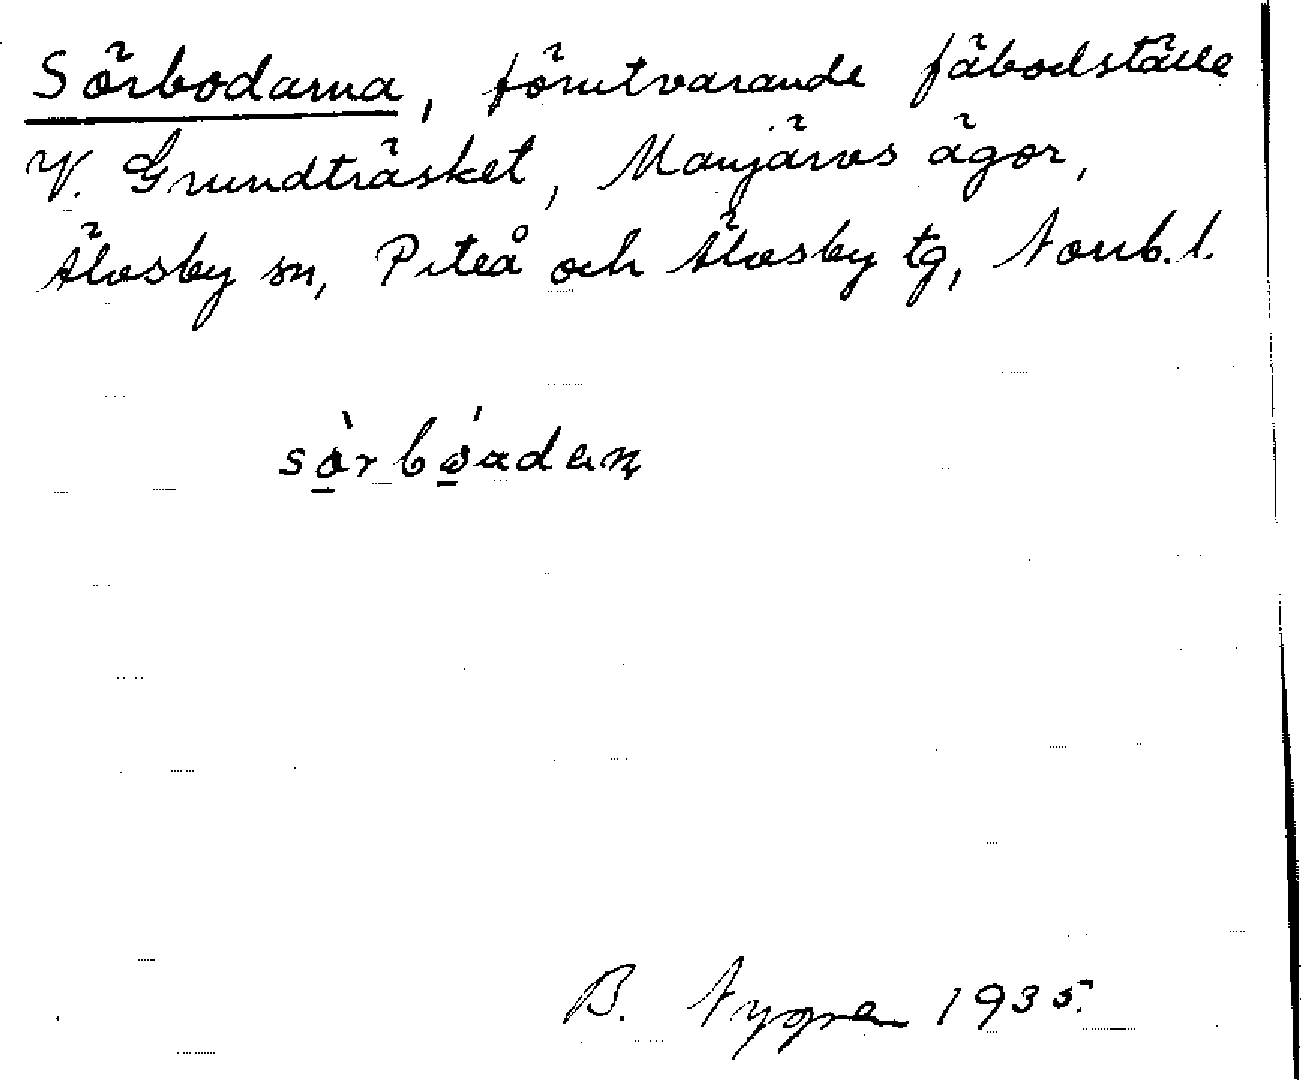 Sörbodarna, förutvarande fäbodställe
V. Grundträsket, Manjärvs ägor,
Älvsby sn, Piteå och Älvsby tg, Norrb. l.
B. Nygren 1935.